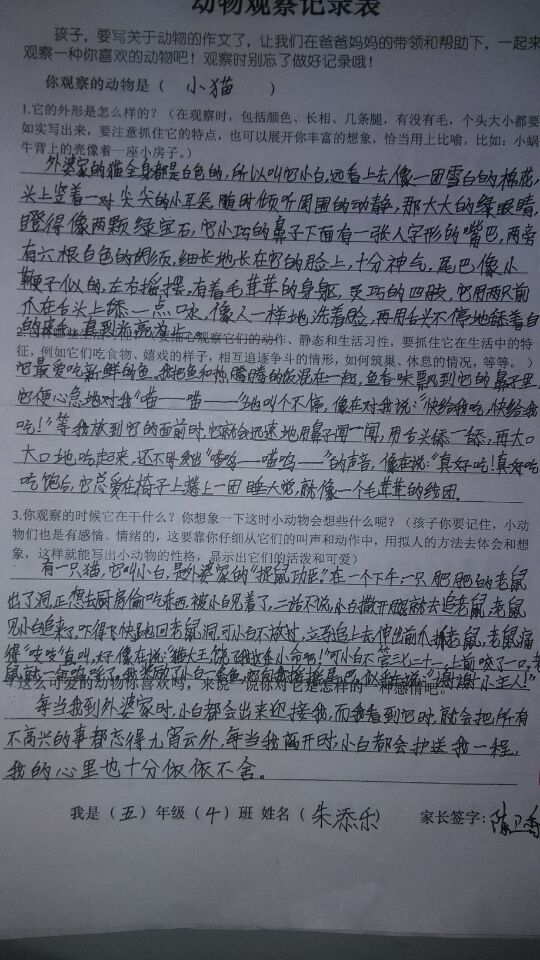 动物观察记录表
孩子，要写关于动物的作文了，让我们在爸爸妈妈的带领和帮助下，一起来
观察一种你喜欢的动物吧！观察时别忘了做好记录哦！
你观察的动物是（ 小猫 ）
1.它的外形是怎么样的？（在观察时，包括颜色、长相、几条腿，有没有毛，个头大小都要
如实写出来，要注意抓住它的特点，也可以展开你丰富的想象，恰当用上比喻，比如：小蜗
牛背上的壳像着一座小房子。）
外婆家的猫全身都是白色的，所以叫它小白，远看上去，像一团雪白的棉花，
头上竖着一对尖尖的小耳朵，随时倾听周围的动静，那大大的绿眼睛，
瞪得像两颗绿宝石，它小巧的鼻子下面有一张人字形的嘴巴，两旁
有六根白色的胡须，细长地长在它的脸上，十分神气，尾巴像小
鞭子似的，左右摇摆，有着毛茸茸的身躯，灵巧的四肢，它用两只前
爪在舌头上舔一点口水，像人一样地洗着脸，再用舌头不停地舔着自
的皮毛，直到光亮为止。
细心观察它们的动作、静态和生活习性，要抓住它在生活中的特
征，例如它们吃食物、嬉戏的样子，相互追逐争斗的情形，如何筑巢、休息的情况，等等。）
它最爱吃新鲜的鱼，我把鱼和热腾腾的饭混在一起，鱼香味飘到它的鼻子里，
它便心急地对我“喵——喵——”地叫个不停，像在对我说：“快给我吃，快给我
吃！”等我放到它的面前时，它就会迅速地用鼻子闻一闻，用舌头舔一舔，再大口
大口地吃起来，还不时发出“喵呜——喵呜——”的声音，像在说：“真好吃！真好吃
吃饱后，它总爱在椅子上蜷上一团睡大觉，就像一个毛茸茸的线团。
3.你观察的时候它在干什么？你想象一下这时小动物会想些什么呢？（孩子你要记住，小动
物们也是有感情、情绪的，这要靠你仔细从它们的叫声和动作中，用拟人的方法去体会和想
象，这样就能写出小动物的性格，显示出它们的活泼和可爱）
有一只猫，它叫小白，是外婆家的“捉鼠功臣”在一个下午，一只肥肥的老鼠
出了洞，正想去厨房偷吃东西，被小白见着了，二话不说，小白撒开腿就去追老鼠，老鼠
见小白追来了，吓得飞快跑回老鼠洞，可小白不放过，立马追上去伸出前爪老鼠，老鼠痛
得“吱吱”直叫，好像在说：“猫大王，饶了我这条小命吧！”可小白不管三七二十一，上前咬了一口，老
么可爱的动物你喜欢吗，来说一说你对它是怎样的一种感情吧。
每当我到外婆家时，小白都会出来迎接我，而我看到它时，就会把所有
不高兴的事都忘得九霄云外，每当我离开时，小白都会护送我一程，
我的心里也十分依依不舍。
我是（五）年级（4）班 姓名（朱添乐） 家长签字：